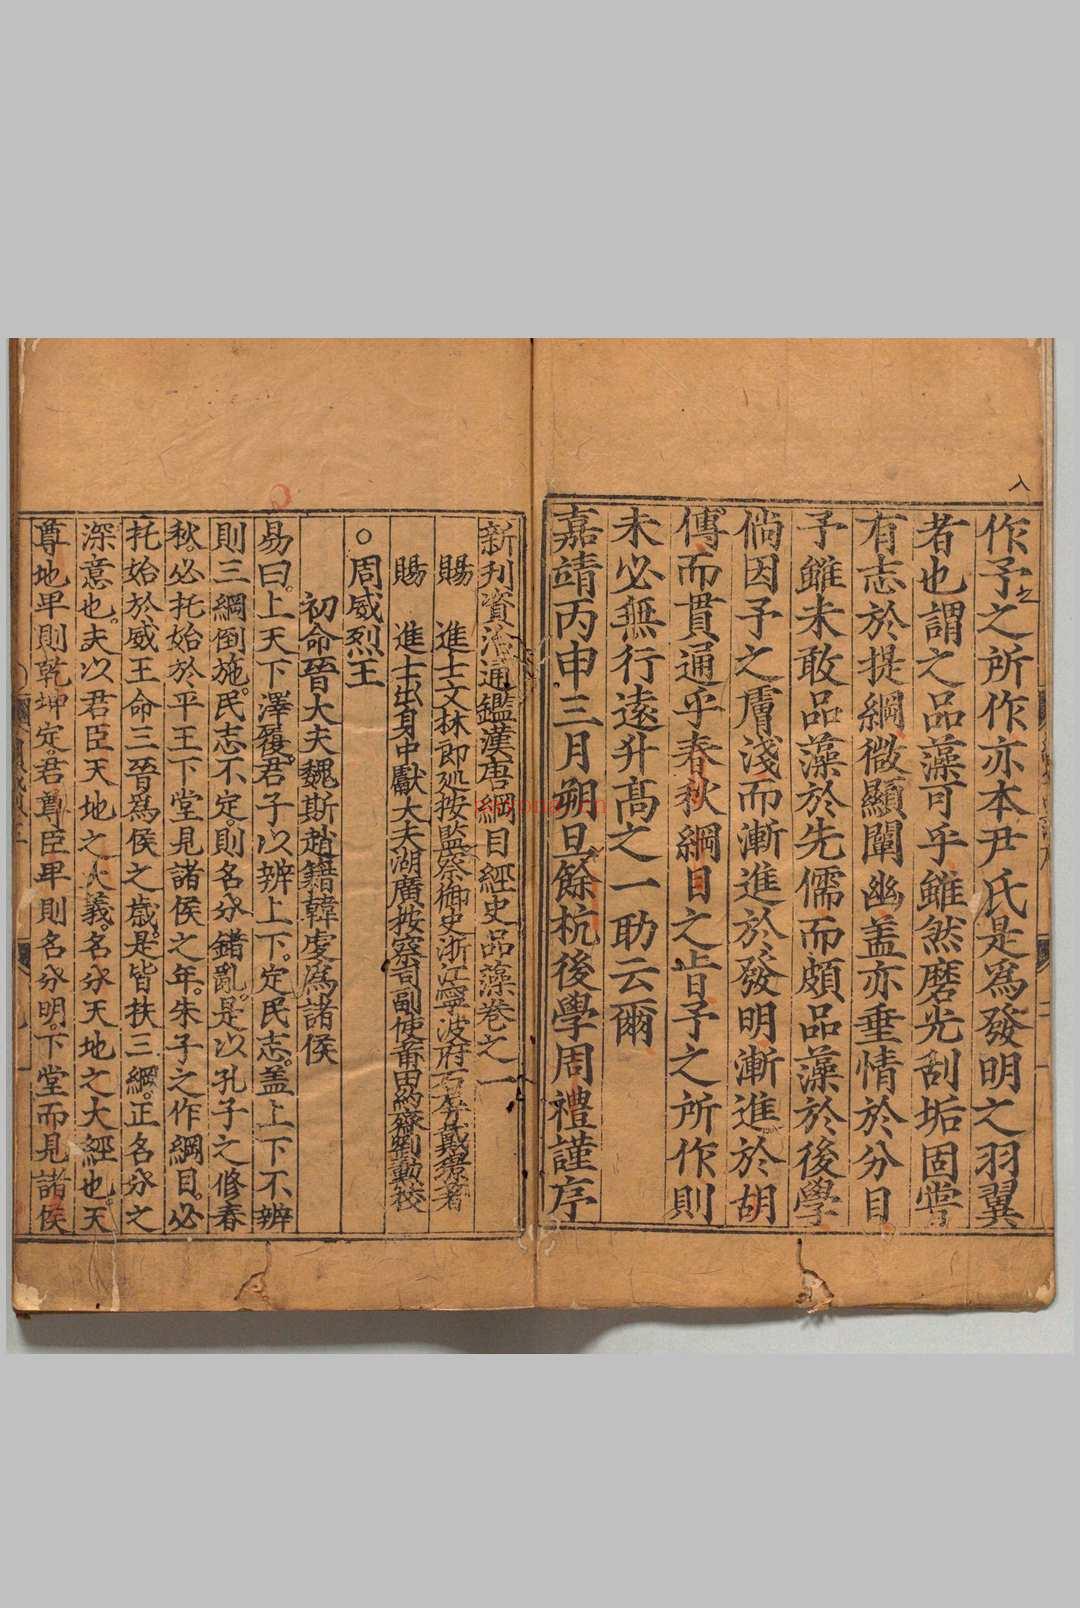 作予之所作亦本尹氏是爲發明之羽翼
者也謂之品藻可乎雖然磨光刮垢固當
有志於提綱微顯闡幽盖亦垂情於分目
予雖未敢品藻於先儒而頗品藻於後學
倘因予之膚淺而漸進於發明漸進於胡
傳而貫通乎春秋綱目之旨予之所作則
未必無行遠升髙之一助云爾
嘉靖丙申三月朔旦餘杭後學周禮謹序
新刊資治通鑑漢唐綱目經史品藻卷之一
賜 進士文林郎廵按監察御史浙江寧波府 戴璟著
賜 進士出身中獻大夫湖廣按察司副使莆田約齋劉勳校
○周威烈王
初命晉大夫魏斯趙籍韓虔爲諸侯
易曰上天下澤履君子以辨上下定民志盖上下不辨
則三綱倒施民志不定則名分錯亂是以孔子之修春
秋必托始於平王下堂見諸侯之年朱子之作綱目必
托始於威王命三晉爲侯之歲是皆扶三綱正名分之
深意也夫以君臣天地之大義名分天地之大經也天
尊地卑則乾坤定君尊臣卑則名分明下堂而見諸侯